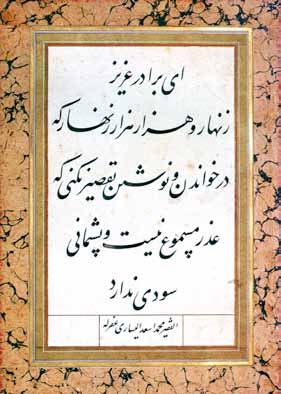 ای برادر عزیز
زنهار و هزار هزار زنهار که
در خواندن و نوشتن تقصیر نکنی که
عذر مسموع نیست و پشیمانی
سودی ندارد
الفقیر محمد اسعد الیساری غفرله